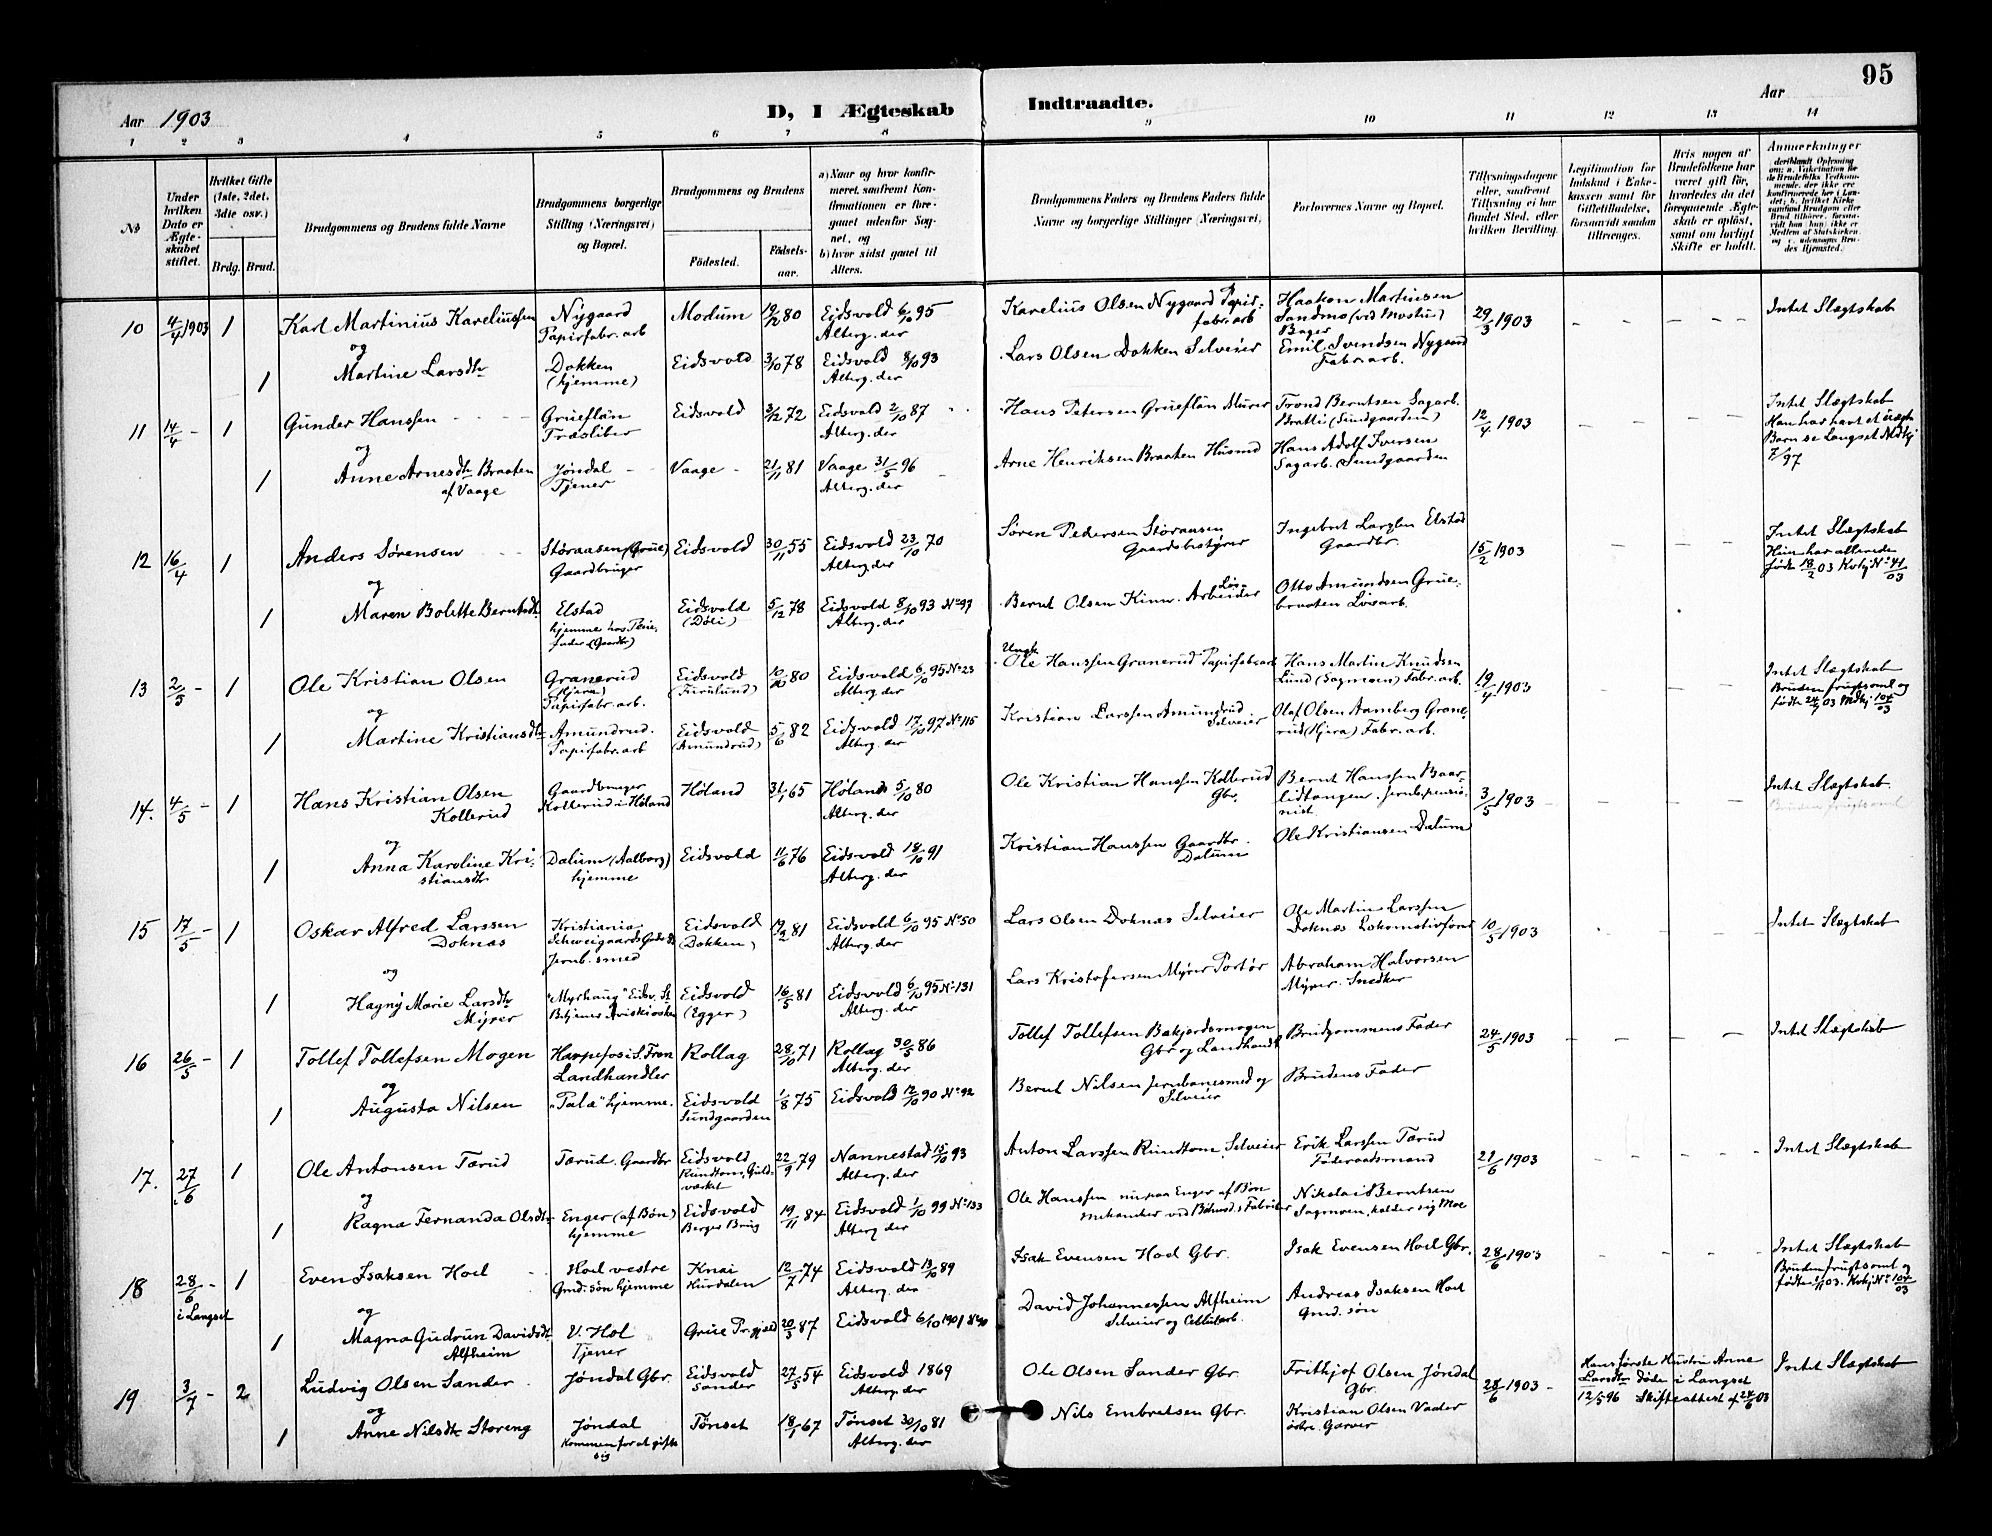 95
Aar 1903
D, I Ægteskab Indtraadte.
Aar
1 2 3 4 5 6 7 8 9 10 11 12 13 14
No
Under hvilken Dato er Ægteskabet stiftet.
Hvilket Gifte (1ste, 2det, 3die osv.)
Brdg. Brud.
Brudgommens og Brudens fulde Navne
Brudgommens borgerlige Stilling (Næringsvei) og Bopæl.
Brudgommens og Brudens
Födested. Födselsaar.
a) Naar og hvor konfirmeret, saafremt Konfirmationen er foregaaet udenfor Sognet, og
b) hvor sidst gaaet til Alters.
Brudgommens Faders og Brudens Faders fulde Navne og borgerlige Stillinger (Næringsvei).
Forlovernes Navne og Bopæl.
Tillysningsdagene eller, saafremt Tillysning ei har fundet Sted, efter hvilken Bevilling.
Legitimation for Indskud i Enkekassen samt for Giftetilladelse, forsaavidt saadan tiltrænges.
Hvis nogen af Brudefolkene har været gift för, hvorledes da det foregaaende Ægteskab er oplöst, samt om lovligt Skifte er holdt.
Anmerkninger
10 4/4 1903 1 Karl Martinius Kareliussen Nygaard Papirfabr.arb Modum 19/12 80 Eidsvold 6/10 95 Alterg. der Karelius Olsen Nygaard Papirfabr.arb Haakon Martinsen Sandmo (ved Mostue) Bager 29/3 1903 – – – Intet Slægtskab
og
1 Martine Larsdtr Dokken (hjemme) Eidsvold 3/10 78 Eidsvold 8/10 93 Alterg. der Lars Olsen Dokken Selveier Emil Svendsen Nygaard Fabr.arb.
11 14/4 – 1 Gunder Hanssen Grueflan Træsliber Eidsvold 3/12 72 Eidsvold 2/10 87 Alterg. der Hans Petersen Grueflan Murer Trond Berntsen Sagarb. Bratli (Sundgaarden) 12/4 1903 – – – Intet Slægtskab Han har havt et uægte Barn se Langset
og
1 Anne Arnesdtr Braaten af Vaage Jøndal Tjener Vaage 21/11 81 Vaage 31/5 96 Alterg. der Arne Henriksen Braaten Husmd Hans Adolf Iversen Sagarb. (Sundgaarden
12 16/4 1 Anders Sørensen Støraasen (Grue) Gaardbruger Eidsvold 30/11 55 Eidsvold 23/10 70 Alterg. der Søren Pedersen Støraasen Gaardbestyrer Ingebret Larssen Elstad Gaardbr. 15/2 1903 – – – Intet Slægtskab Hun har allerede født 18/2 03 Kvkj No 41/03
og
1 Maren Bolette Berntsdtr Elstad hjemme hos Pleiefader (Gaardbr) Eidsvold (Døli) 5/12 78 Eidsvold 8/10 93 No 97 Alterg. der Bernt Olsen Kinn. Løsarbeider Otto Amundsen Gruebraaten Løsarb.
13 2/5 – 1 Ole Kristian Olsen Granerud (Bjera) Papirfabr.arb. Eidsvold (Furulund) 10/10 80 Eidsvold 6/10 95 No 23 Alterg. der Ungk. Ole Hanssen Granerud Papirfab.arb Hans Martin Knudsen Lund (Sagmoen) Fabr.arb. 19/4 1903 – – – Intet Slægtskab Bruden frugtsoml og født 24/7 03 Mdkj 104/03
og
1 Martine Kristiansdtr Amundrud. Papirfabr.arb Eidsvold (Amundrud) 5/6 82 Eidsvold 17/10 97 No 115 Alterg. der Kristian Larssen Amundrud Selveier Olaf Olsen Aamberg Granerud (Bjera) Fabr.arb.
14. 4/5 – 1 Hans Kristian Olsen Kollerud Gaardbruger Kollerud i Høland Høland 31/1 65 Høland 5/10 80 Alterg. der Ole Kristian Hanssen Kollerud Gbr. Bernt Hanssen Baarlidtangen. Jernb.pensionist 3/5 1903 – – – Intet Slægtskab.
og
1 Anna Karoline Kristiansdtr Dalum (Aalborg) hjemme Eidsvold 11/6 76 Eidsvold 18/10 91 Alterg. der Kristian Hanssen Gaardbr. Dalum Ole Kristiansen Dalum
15 17/5 – 1 Oskar Alfred Larssen Doknæs Kristiania Schweigaards Gade Jernb. smed Eidsvold (Dokken) 19/2 81 Eidsvold 6/10 95 No 50 Alterg. der Lars Olsen Doknæs Selveier Ole Martin Larssen Doknæs Lokomotivförer 10/5 1903 Intet Slægtskab
og
1 Hagny Marie Larsdtr Myrer "Myrhaug" Eidsv. St. Betjener Aviskiosken Eidsvold (Egger) 16/5 81 Eidsvold 6/10 95 No 131 Alterg. der Lars Kristofersen Myrer Portør Abraham Halvorsen Myrer. Snedker
16 26/5 – 1 Tollef Tollefsen Mogen Harpefos i S. Fron Landhandler Rollag 28/10 71 Rollag 30/5 86 Alterg. der Tollef Tollefsen Bakjordsmogen Gbr og Landhandl Brudgommens Fader 24/5 1903 – – – Intet Slægtskab
og
1 Augusta Nilsen "Pala" hjemme. Eidsvold Sundgaarden 1/8 75 Eidsvold 12/10 90 No 92 Bernt Nilsen Jernbanesmed og Selveier Brudens Fader
17. 27/6 1 Ole Antonsen Tærud Tærud. Gaardbr Eidsvold Rundtom, Guldværket 22/9 79 Nannestad 15/10 93 Alterg. der Anton Larssen Rundtom. Selveier Erik Larssen Tærud Føderaadsmand 21/6 1903 – – – Intet Slægtskab
og
1 Ragna Fernanda Olsdtr Enger (af Bøn) hjemme Eidsvold Berger Brug 19/11 84 Eidsvold 1/10 99 No 133 Alterg. der Ole Hanssen nu paa Enger af Bøn mekaniker ved Fabriker Nikolai Berntsen Sagmoen, kalder sig Moe
18 28/6 – i Langset 1 Even Isaksen Hoel Hoel vestre Gmd. søn hjemme Knai Hurdalen 12/7 74 Eidsvold 13/10 89 Alterg. der Isak Evensen Hoel Gbr. Isak Evensen Hoel Gbr. 28/6 1903 – – – Intet Slægtskab Bruden frugtsoml og født 03. Kvkj No 104/03
og
1 Magna Gudrun Davidsdtr Alfheim V. Hol Tjener Grue Prgjeld 20/3 87 Eidsvold 6/10 1901 David Johannessen Alfheim Selveier og Cellularb. Andreas Isaksen Hoel Gmd. søn
19 3/7 – 2 Ludvig Olsen Sander Jøndal Gbr. Eidsvold Sander 27/5 54 Eidsvold 1869 Alterg. der Ole Olsen Sander Gbr. Frithjof Olsen Jøndal Gbr. 28/6 1903 – Hans første Hustru Anne Larsdtr døde i Langset 12/5 96 Skifteattest af 24/6 03 Intet Slægtskab
og
1 Anne Nilsdtr Storeng Jøndal Kommen for at gifte sig Tønset 18/1 67 Tønset 30/10 81 Alterg. der Nils Embretsen Gbr. Kristian Olsen Vader østre. Garver